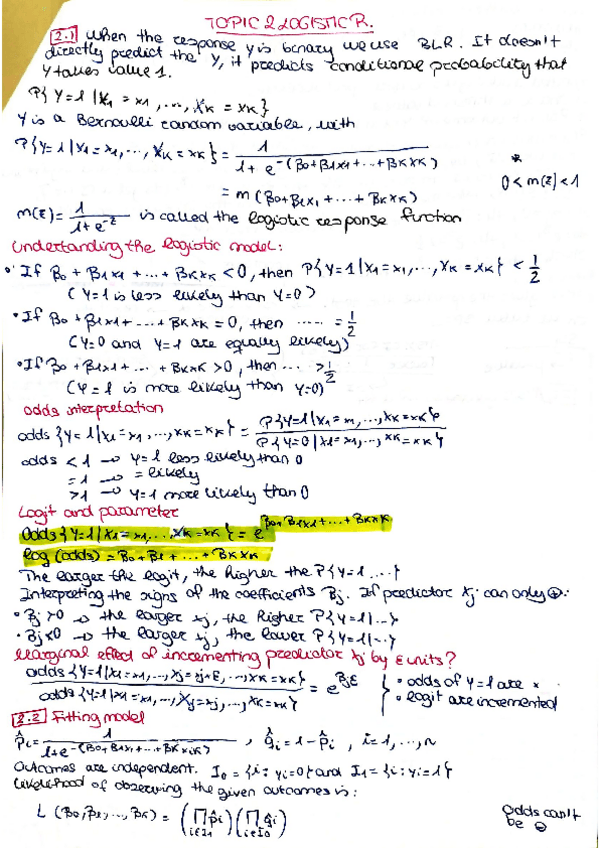 TOPIC 2 LOGISTIC R.
2.1 When the response Y is binary we use BLR. It doesn't
directly predict the Y, it predicts conditional probability that
Y takes value 1.
P{Y=1 | X1 = x1, ..., XK = xK}
Y is a Bernoulli random variable, with
P{Y=1 | X1=x1, ..., XK = xK} = 1 / (1 + e^-(B0+B1x1+...+BKxK))
* 0 < m(z) < 1
= m(B0+B1x1 + ... + BKxK)
m(z) = 1 / (1+e^-z) is called the logistic response function
Understanding the logistic model:
• If B0 + B1x1 + ... + BKxK < 0, then P{Y=1 | X1=x1, ..., XK = xK} < 1/2
(Y=1 is less likely than Y=0)
• If B0 + B1x1+ ... + BKxK = 0, then ...... = 1/2
(Y=0 and Y=1 are equally likely)
• If B0 + B1x1+ ... + BKxK > 0, then ... > 1/2
(Y=1 is more likely than Y=0)
odds interpretation
odds {Y=1 | X1=x1, ..., XK=xK} = P{Y=1 | X1=x1, ..., XK=xK} / P{Y=0 | X1=x1, ..., XK=xK}
odds < 1 → Y=1 less likely than 0
= 1 → = likely
> 1 → Y=1 more likely than 0
Logit and parameter
Odds{Y=1 | X1=x1, ..., XK=xK} = e^B0+B1x1+...+BKxK
log (odds) = B0+B1 + ... + BKxK
The larger the logit, the higher the P{Y=1 ....}
Interpreting the signs of the coefficients Bj. If predictor Xj can only ⊕:
• Bj >0 → the larger xj, the higher P{Y=1|..}
• Bj<0 → the larger xj, the lower P{Y=1|..}
Marginal effect of incrementing predictor Xj by ε units?
odds{Y=1 | X1=x1, ..., Xj=xj+ε, ..., XK=xK} / odds{Y=1 | X1=x1, ..., Xj=xj, ..., XK=xK} = e^Bjε
• odds of Y=1 are ×
• logit are incremented
2.2 Fitting model
p̂i = 1 / (1+e^-(B0+B1x1+...+BKxiK)) , q̂i = 1 - p̂i , i=1, ..., n
Outcomes are independent. I0 = {i: yi=0} and I1 = {i: yi=1}
Likelihood of observing the given outcomes is:
L (B0, B1, ..., BK) = (∏ i∈I1 p̂i)(∏ i∈I0 q̂i)
odds can't
be ⊖